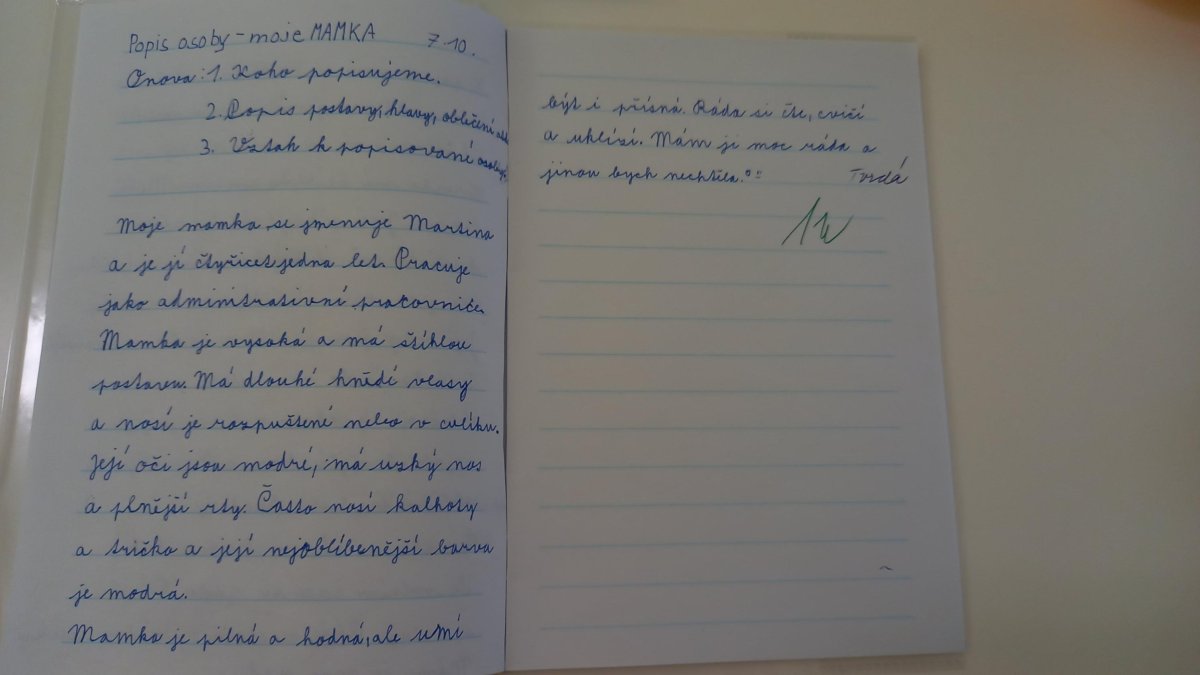 Popis osoby - moje MAMKA 7.10.
Osnova: 1. Koho popisujeme.
2. Popis postavy, hlavy, oblečení
3. Vztah k popisované osoby
Moje mamka se jmenuje Martina
a je jí čtyřicet jedna let. Pracuje
jako administrativní pracovnice.
Mamka je vysoká a má štíhlou
postavu. Má dlouhé hnědé vlasy
a nosí je rozpuštené nebo v culíku.
Její oči jsou modré, má uzký nos
a plnější rty. Často nosí kalhoty
a tričko a její nejoblíbenější barva
je modrá.
Mamka je pilná a hodná, ale umí
být i přísná. Ráda si čte, cvičí
a uklízí. Mám ji moc ráda a
jinou bych nechtěla. Tvrdá